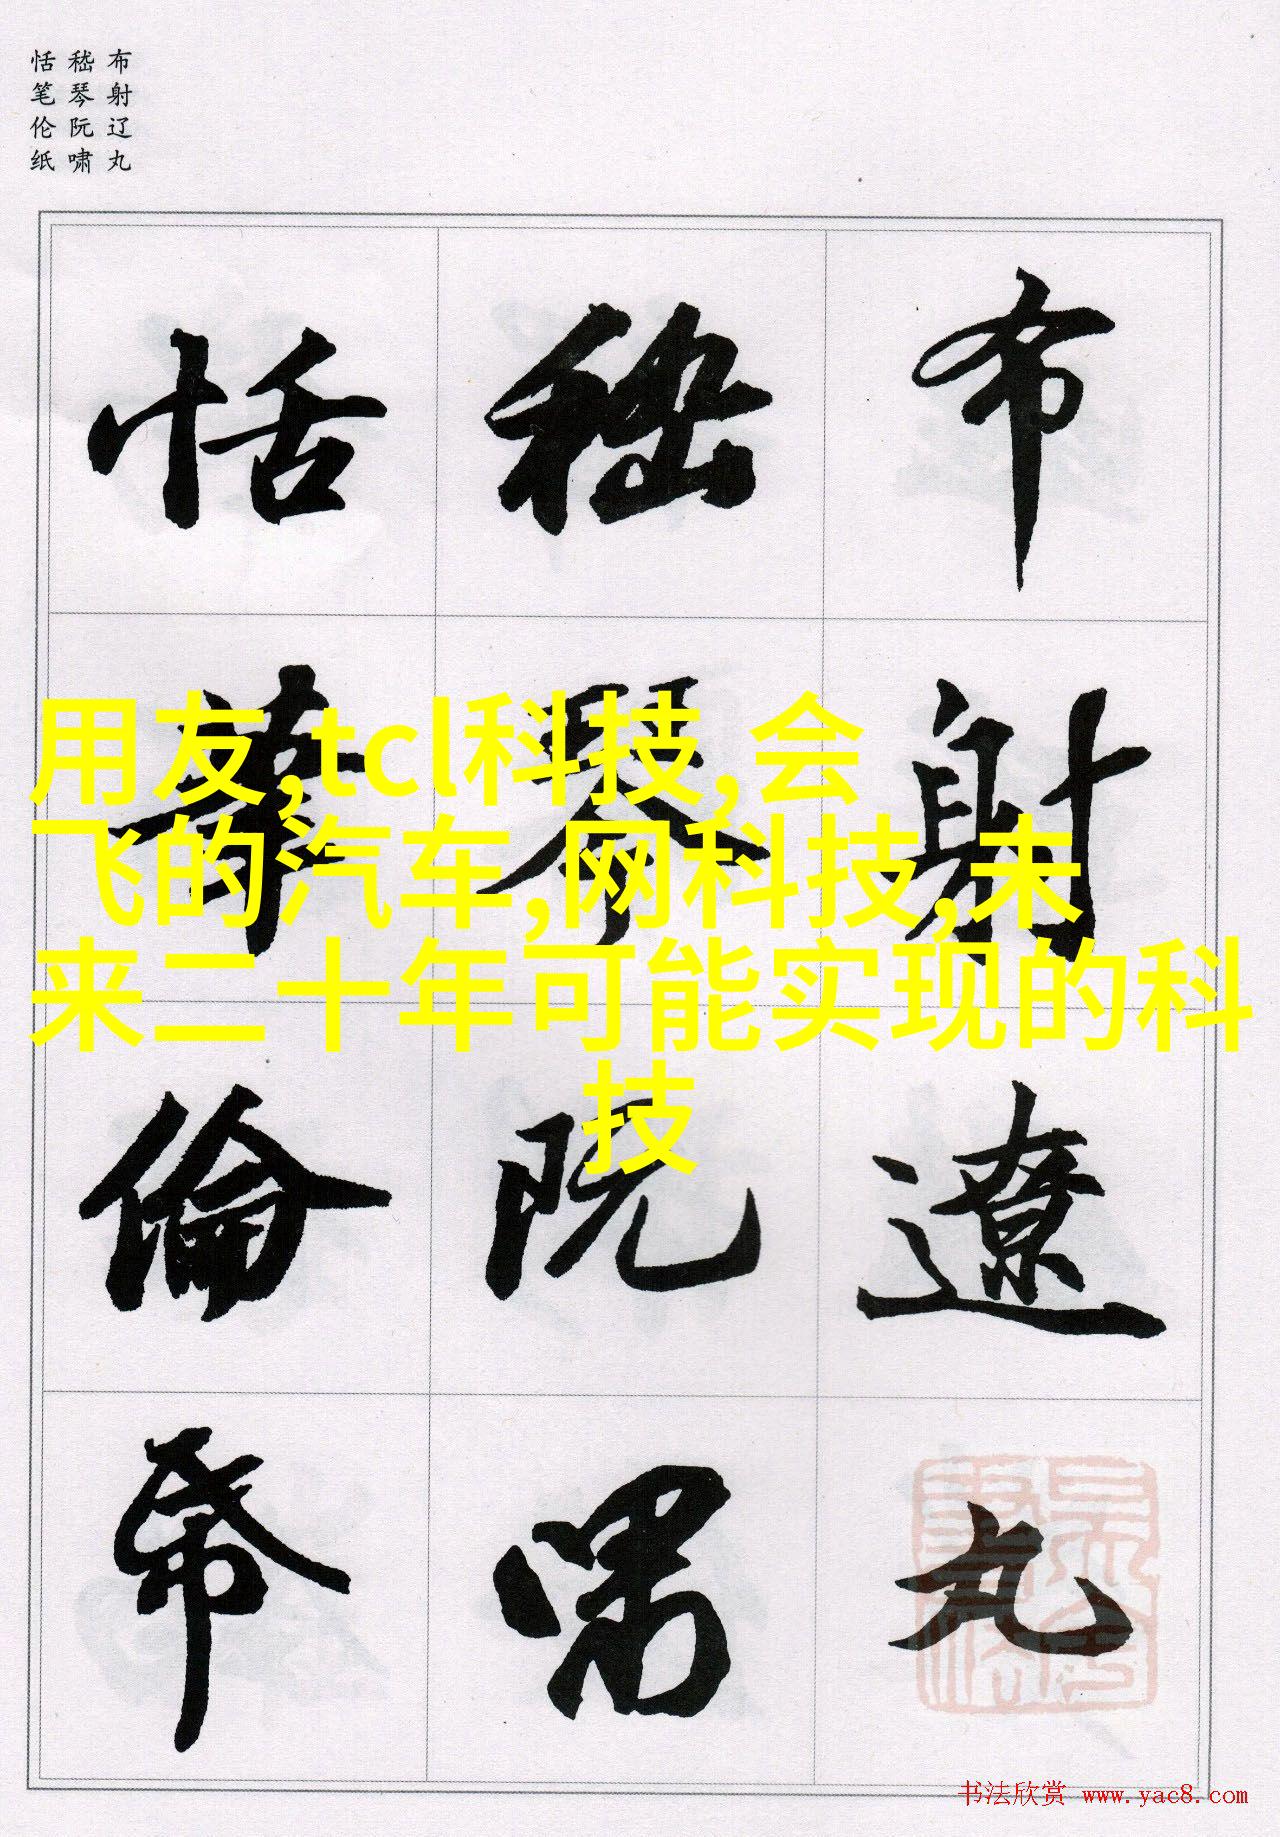 布射辽丸
嵇琴阮啸
恬笔伦纸
布射遼丸
嵇琴阮嘯
恬筆倫帋
用友,tcl科技,会
飞的汽车,网科技,未
来二十年可能实现的科
技
书法欣赏 www.yac8.com